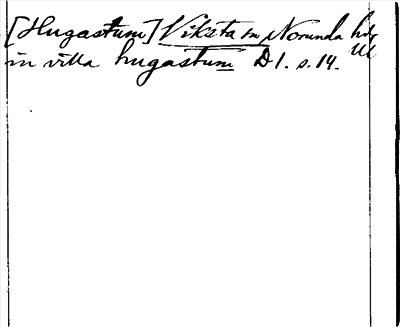 [Hugastum] Viksta sn Norunda hd.
Ul
in villa hugastum D 1. s. 14.